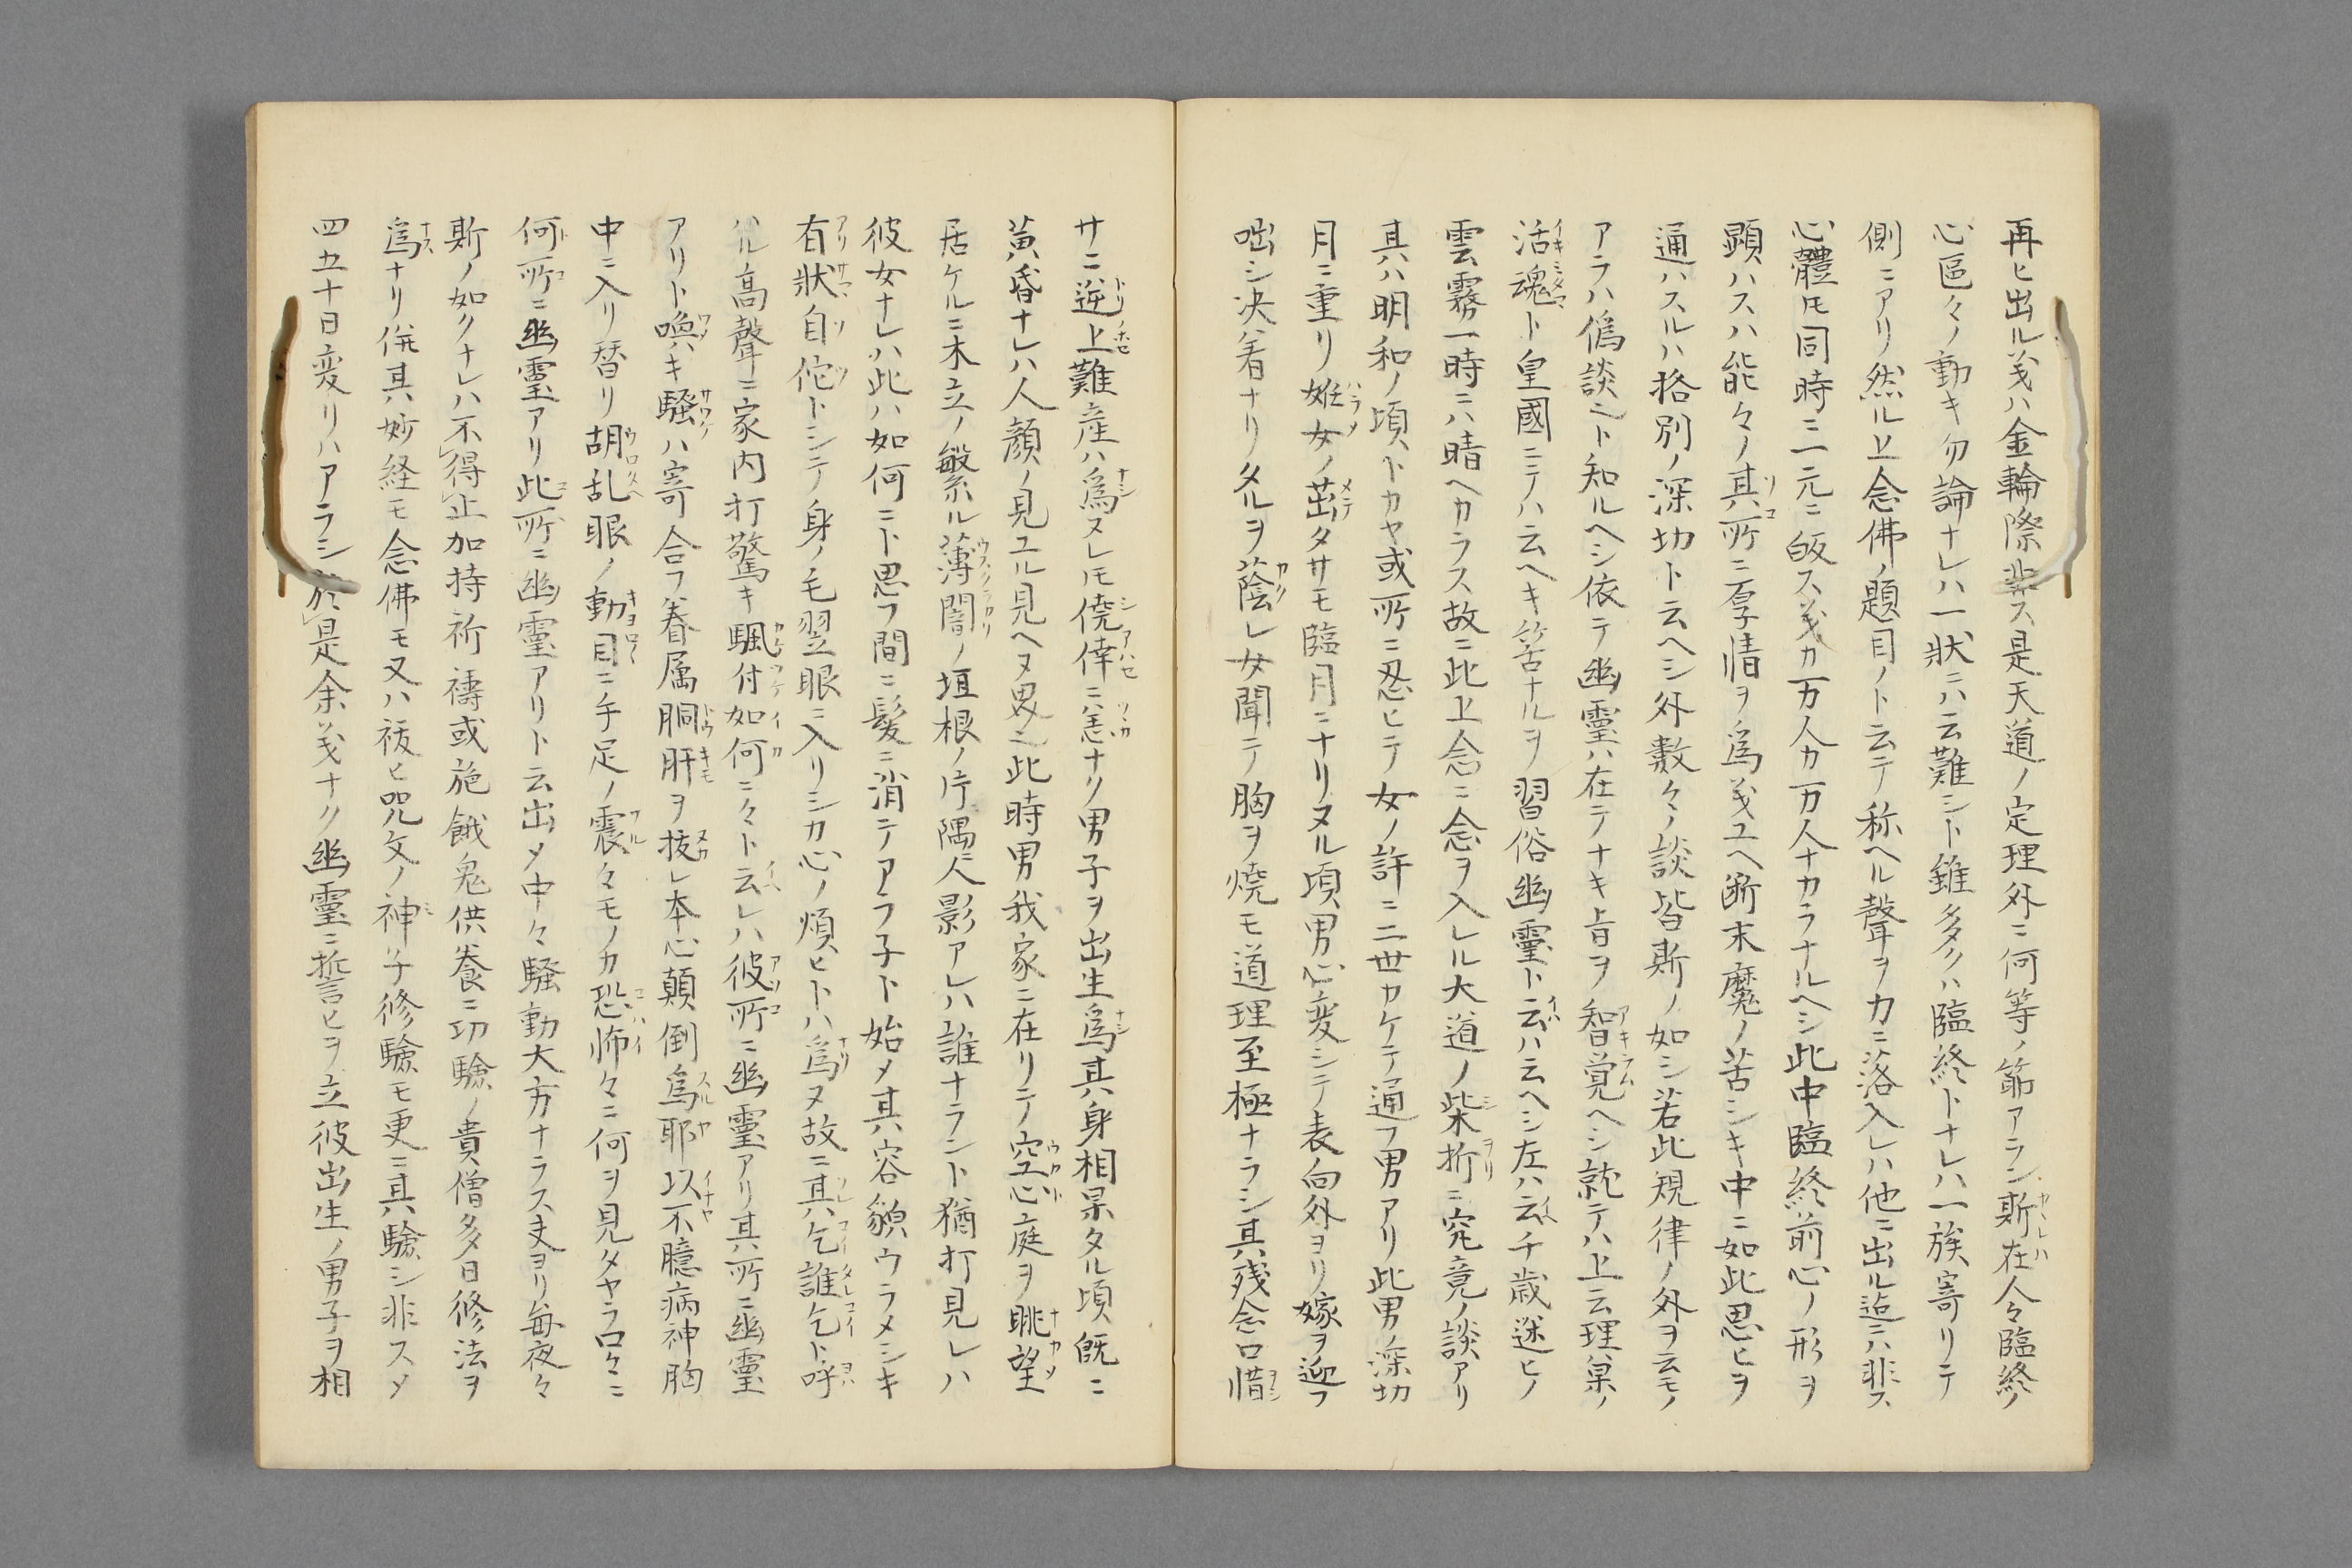 再ヒ出ル義ハ金輪際非ス是天道ノ定理外ニ何等ノ節アラン斯在人々臨終ノ
心區々ノ動キ勿論ナレハ一狀ニハ云難シト雖多クハ臨終トナレハ一族寄リテ
側ニアリ然ル上念佛ノ題目ノト云テ称ヘル聲ヲ力ニ落入レハ他ニ出ル迠ニハ非ス
心體㪽同時ニ一元ニ皈ス義カ万人カ万人ナカラナルヘシ此中臨終前心ノ形ヲ
顕ハスハ能々ノ其所ニ厚情ヲ爲義ユヘ断末魔ノ苦シキ中ニ如此思ヒヲ
通ハスルハ格別ノ深切ト云ヘシ外數々ノ談皆斯ノ如シ若此規律ノ外ヲ云モノ
アラハ僞談也ト知ルヘシ依テ幽靈ハ在テナキ旨ヲ智覚ヘシ就テハ上云理㒵ノ
活魂ト皇國ニテハ云ヘキ筈ナルヲ習俗幽靈ト云ハ云ヘシ左ハ云ヘ千歳迷ヒノ
雲霧一時ニハ晴ヘカラス故ニ此上念ニ念ヲ入レル大道ノ柴折ニ究竟ノ談アリ
其ハ明和ノ頃トカヤ或所ニ忍ヒテ女ノ許ニ二世カケテ通フ男アリ此男ノ深切
月ニ重リ姙女ノ茁タサモ臨月ニナリヌル頃男心変シテ表向外ヨリ嫁ヲ迎フ
咄シ决着ナリタルヲ蔭レ女聞テ胸ヲ燒モ道理至極ナラシ其残念口惜
サニ逆上難産ハ爲ヌレ㪽僥倖ニ恙ナク男子ヲ出生爲其身相果タル頃既ニ
黄昏ナレハ人顔ノ見ユル見ヘヌ畟也此時男我家ニ在リテ空心庭ヲ眺望
居ケルニ木立ノ繁ル薄闇ノ垣根ノ片隅ニ人影アレハ誰ナラント猶打見レハ
彼女ナレハ此ハ如何ニト思フ間ニ髪ニ消テアラ子ト始メ其容貌ウラメシキ
有狀自佗トシテ身ノ毛翌眼ニ入リシカ心ノ煩ヒトハ爲ヌ故ニ其乞誰乞ト呼
ハル高聲ニ家内打驚キ颿付如何ニ々ト云レハ彼所ニ幽靈アリ其所ニ幽靈
アリト喚ハキ騒ハ寄合フ眷属胴肝ヲ抜レ本心顛倒爲耶以不臆病神胸
中ニ入リ替リ胡乱眼ノ動目ニ手足ノ震々モノカ恐怖々ニ何ヲ見タヤラ口々ニ
何所ニ幽靈アリ此所ニ幽靈アリト云出メ中々騒動大方ナラス夫ヨリ毎夜々
斯ノ如クナレハ不得止加持祈禱或施餓鬼供養ニ功験ノ貴僧多日修法ヲ
爲ナリ併其妙経モ念佛モ又ハ祓ヒ咒文ノ神子修驗モ更ニ其驗シ非スメ
四五十日変リハアラシ於是余義ナク幽靈ニ誓ヒヲ立彼出生ノ男子ヲ相